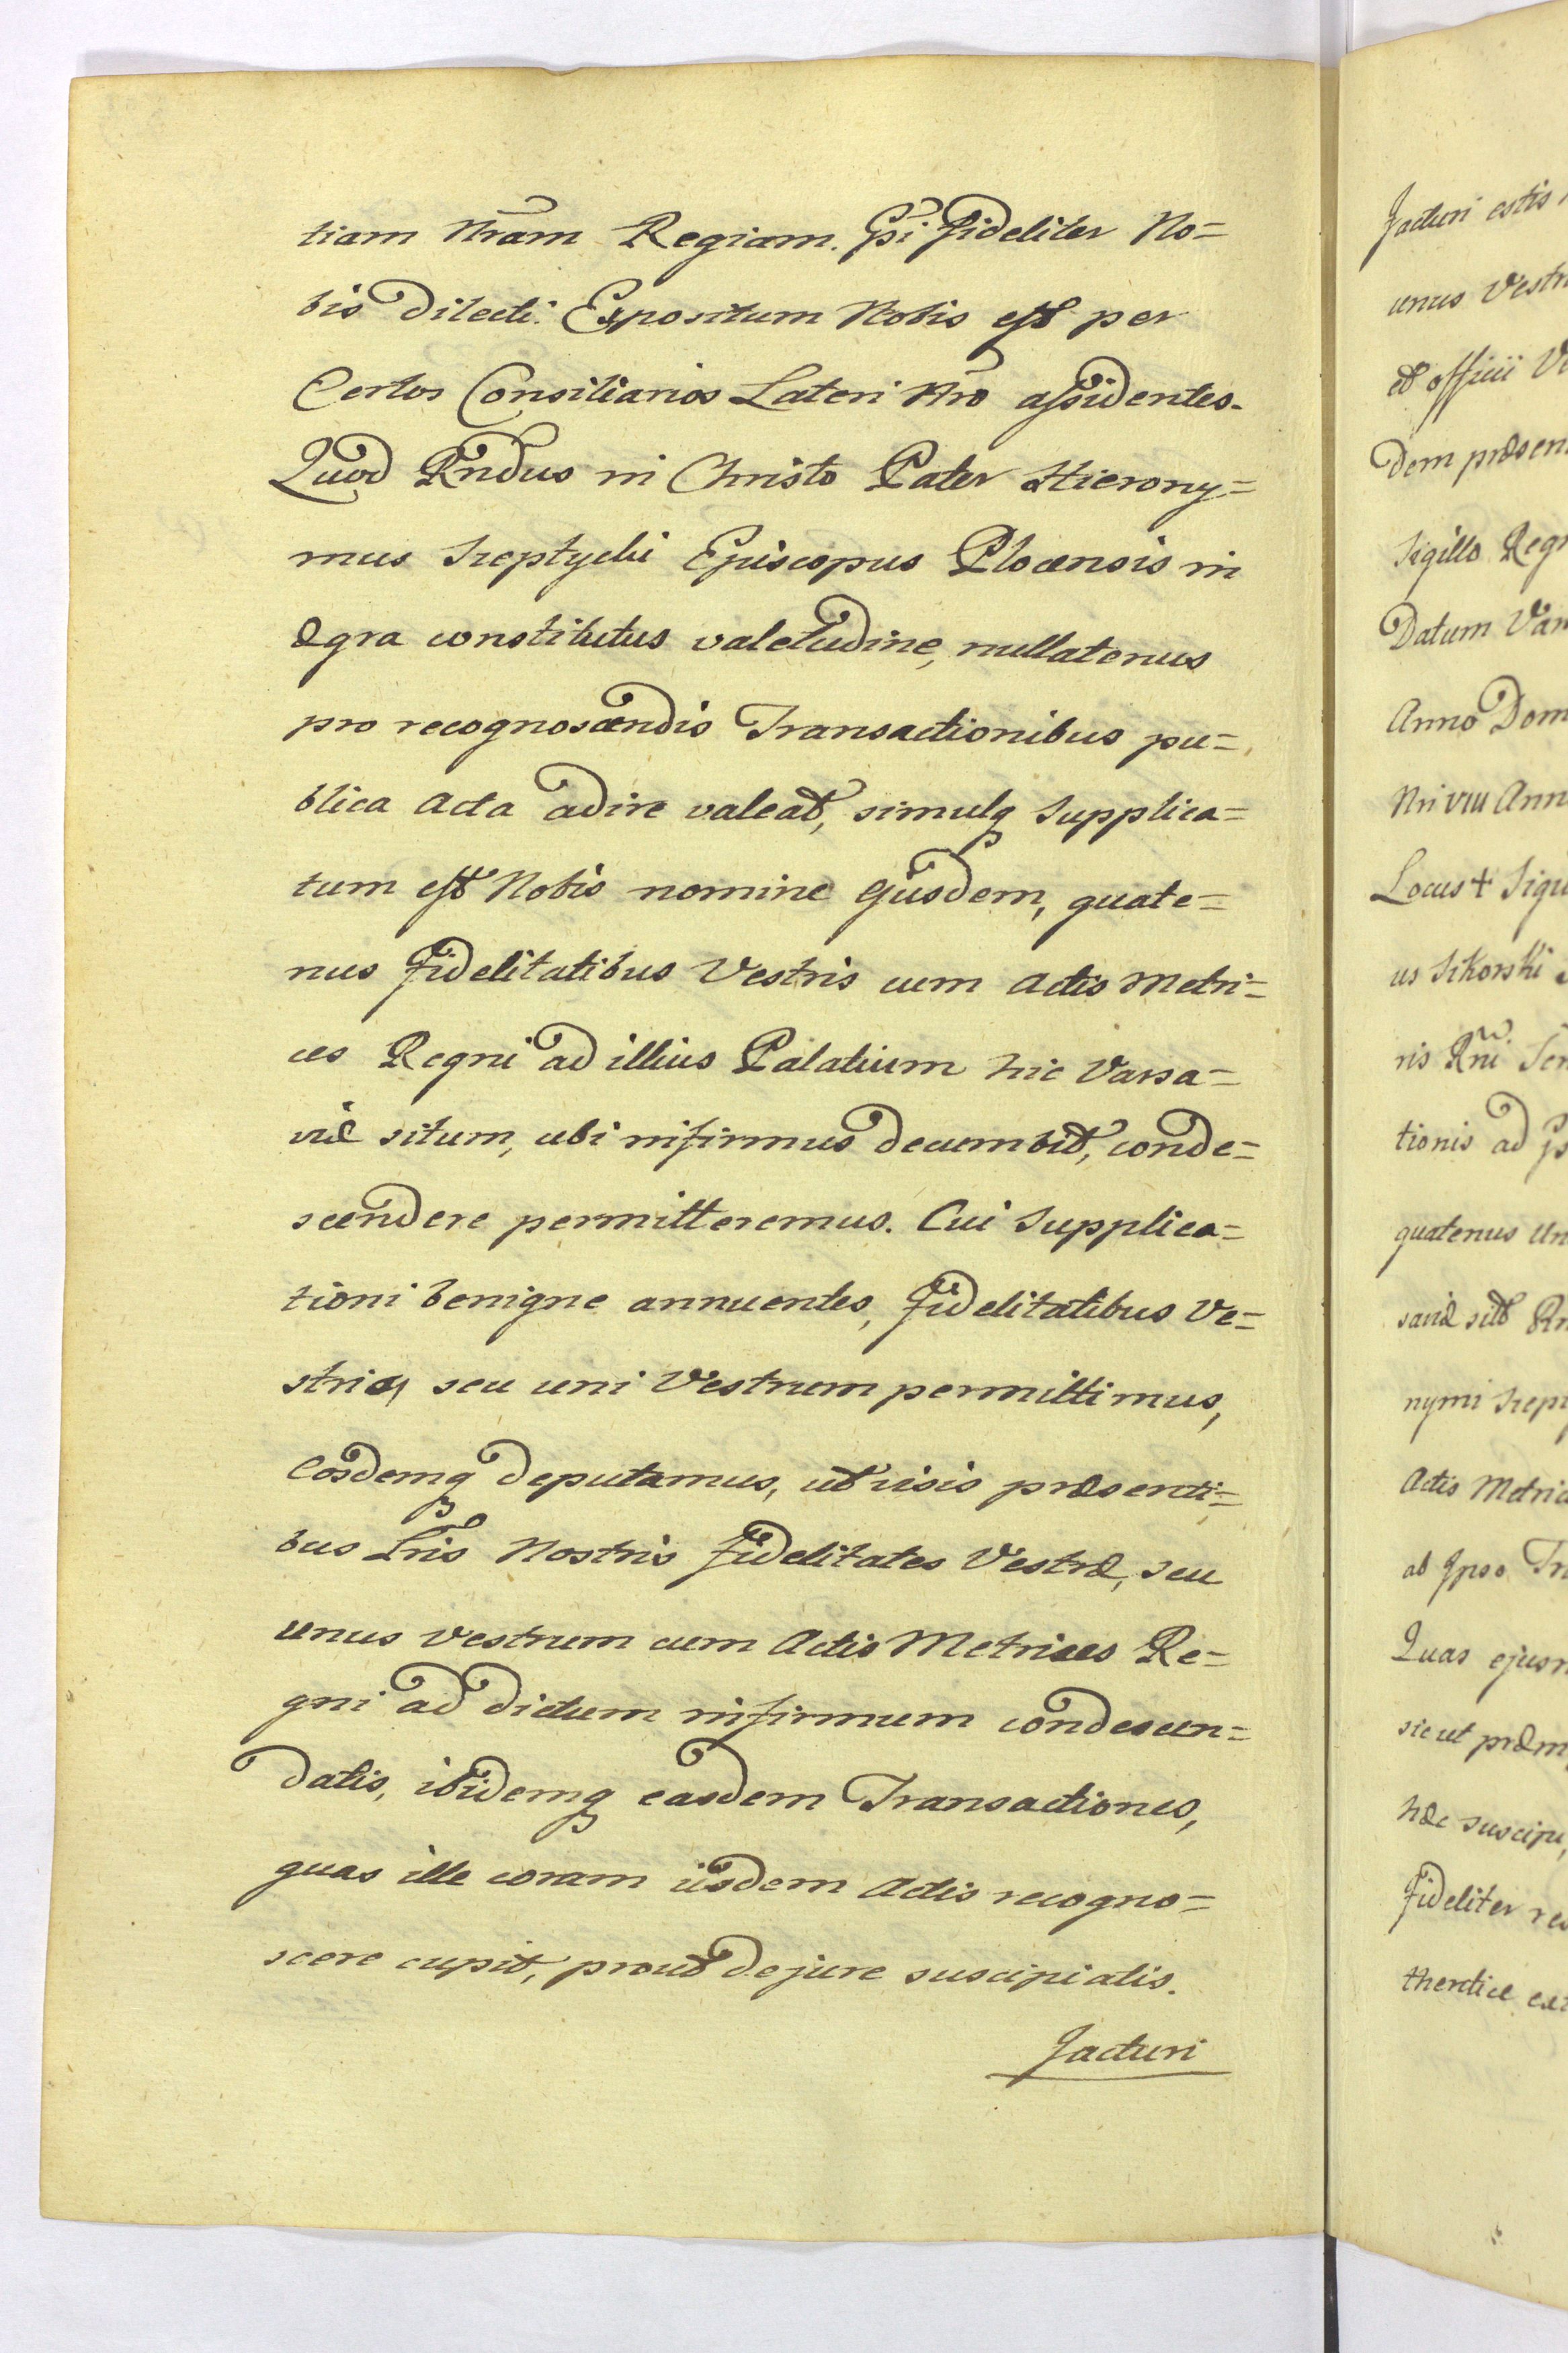 tiam Nram Regiam. Gsi Fideliter No=
bis Dilecti. Expositum Nobis est per
Certos Consiliarios Lateri Nro assidentes.
Quod Rndus in Christo Pater Hierony=
mus Szeptycki Episcopus Plocensis in
ægra constitutus valetudine, nullatenus
pro recognoscendis Transactionibus pu=
blica Acta adire valeat, simulq Supplica=
tum est Nobis nomine Ejusdem, quate=
nus Fidelitatibus Vestris cum Actis Metri=
ces Regni ad illius Palatium hic Varsa=
viæ situm, ubi infirmus decumbit, conde=
scendere permitteremus. Cui Supplica=
tioni benigne annuentes, Fidelitatibus Ve=
stris seu uni Vestrum permittimus,
Eosdemq deputamus, ut visis præsenti=
bus Lris Nostris Fidelitates Vestræ, seu
unus vestrum cum Actis Metrices Re=
gni ad dictum infirmum condescen=
datis, ibidemq easdem Transactiones,
quas ille coram iisdem Actis recogno=
scere cupit, prout de jure suscipiatis.
Facturi
Facturi estis
unus Vestr
et officii Ve
dem præsen
Sigillo Reg
Datum Var
Anno Dom
Nri VIII Ann
Locus + Sigi
us Sikorski
ris Rni Ser
tionis ad
quatenus un
saviæ sit Rn
nymi Szep
Actis Metric
ab Ipso Tr
Quas ejus
sicut præm
hæc suscipi
Fideliter re
thentice ex